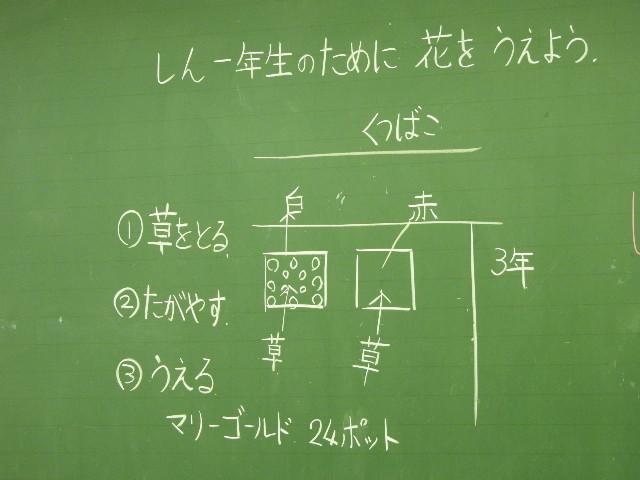 しん一年生のために 花を うえよう.
くつばこ
白 赤
①草をとる
3年
②たがやす
草 草
③うえる
マリーゴールド 24ポット